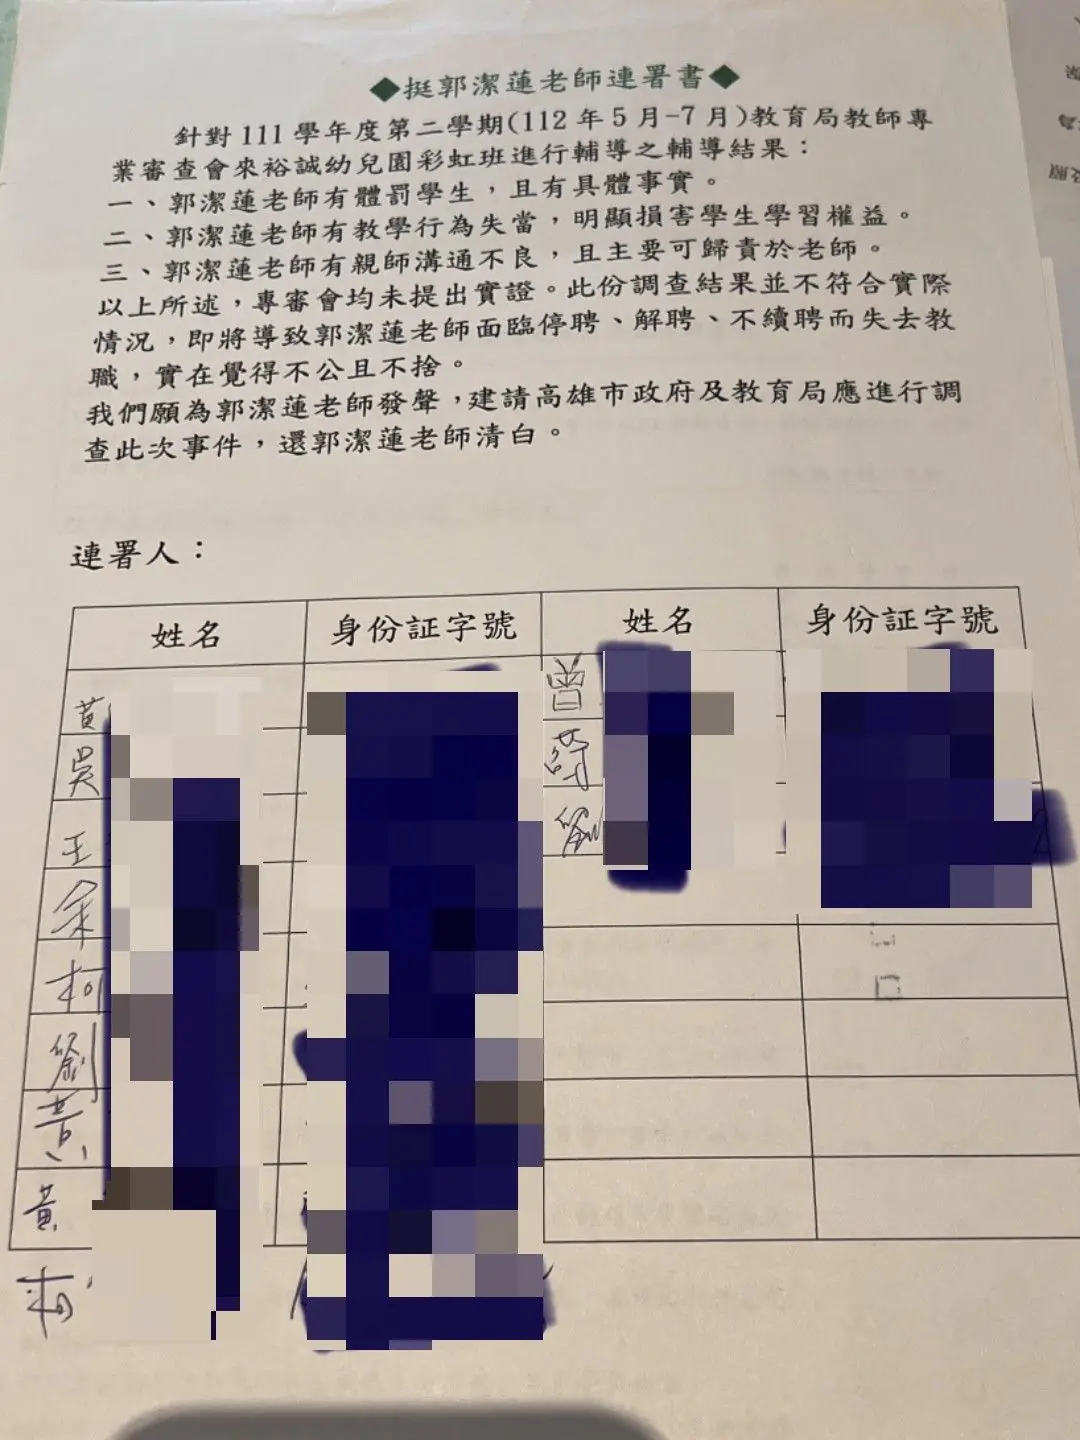 ◆挺郭潔蓮老師連署書◆
針對111學年度第二學期(112年5月-7月)教育局教師專
業審查會來裕誠幼兒園彩虹班進行輔導之輔導結果：
一、郭潔蓮老師有體罰學生，且有具體事實。
二、郭潔蓮老師有教學行為失當，明顯損害學生學習權益。
三、郭潔蓮老師有親師溝通不良，且主要可歸責於老師。
以上所述，專審會均未提出實證。此份調查結果並不符合實際
情況，即將導致郭潔蓮老師面臨停聘、解聘、不續聘而失去教
職，實在覺得不公且不捨。
我們願為郭潔蓮老師發聲，建請高雄市政府及教育局應進行調
查此次事件，還郭潔蓮老師清白。
連署人：
姓名 身份証字號 姓名 身份証字號
黃 曾
吳
王 劉
余
柯
劉
黃
黃